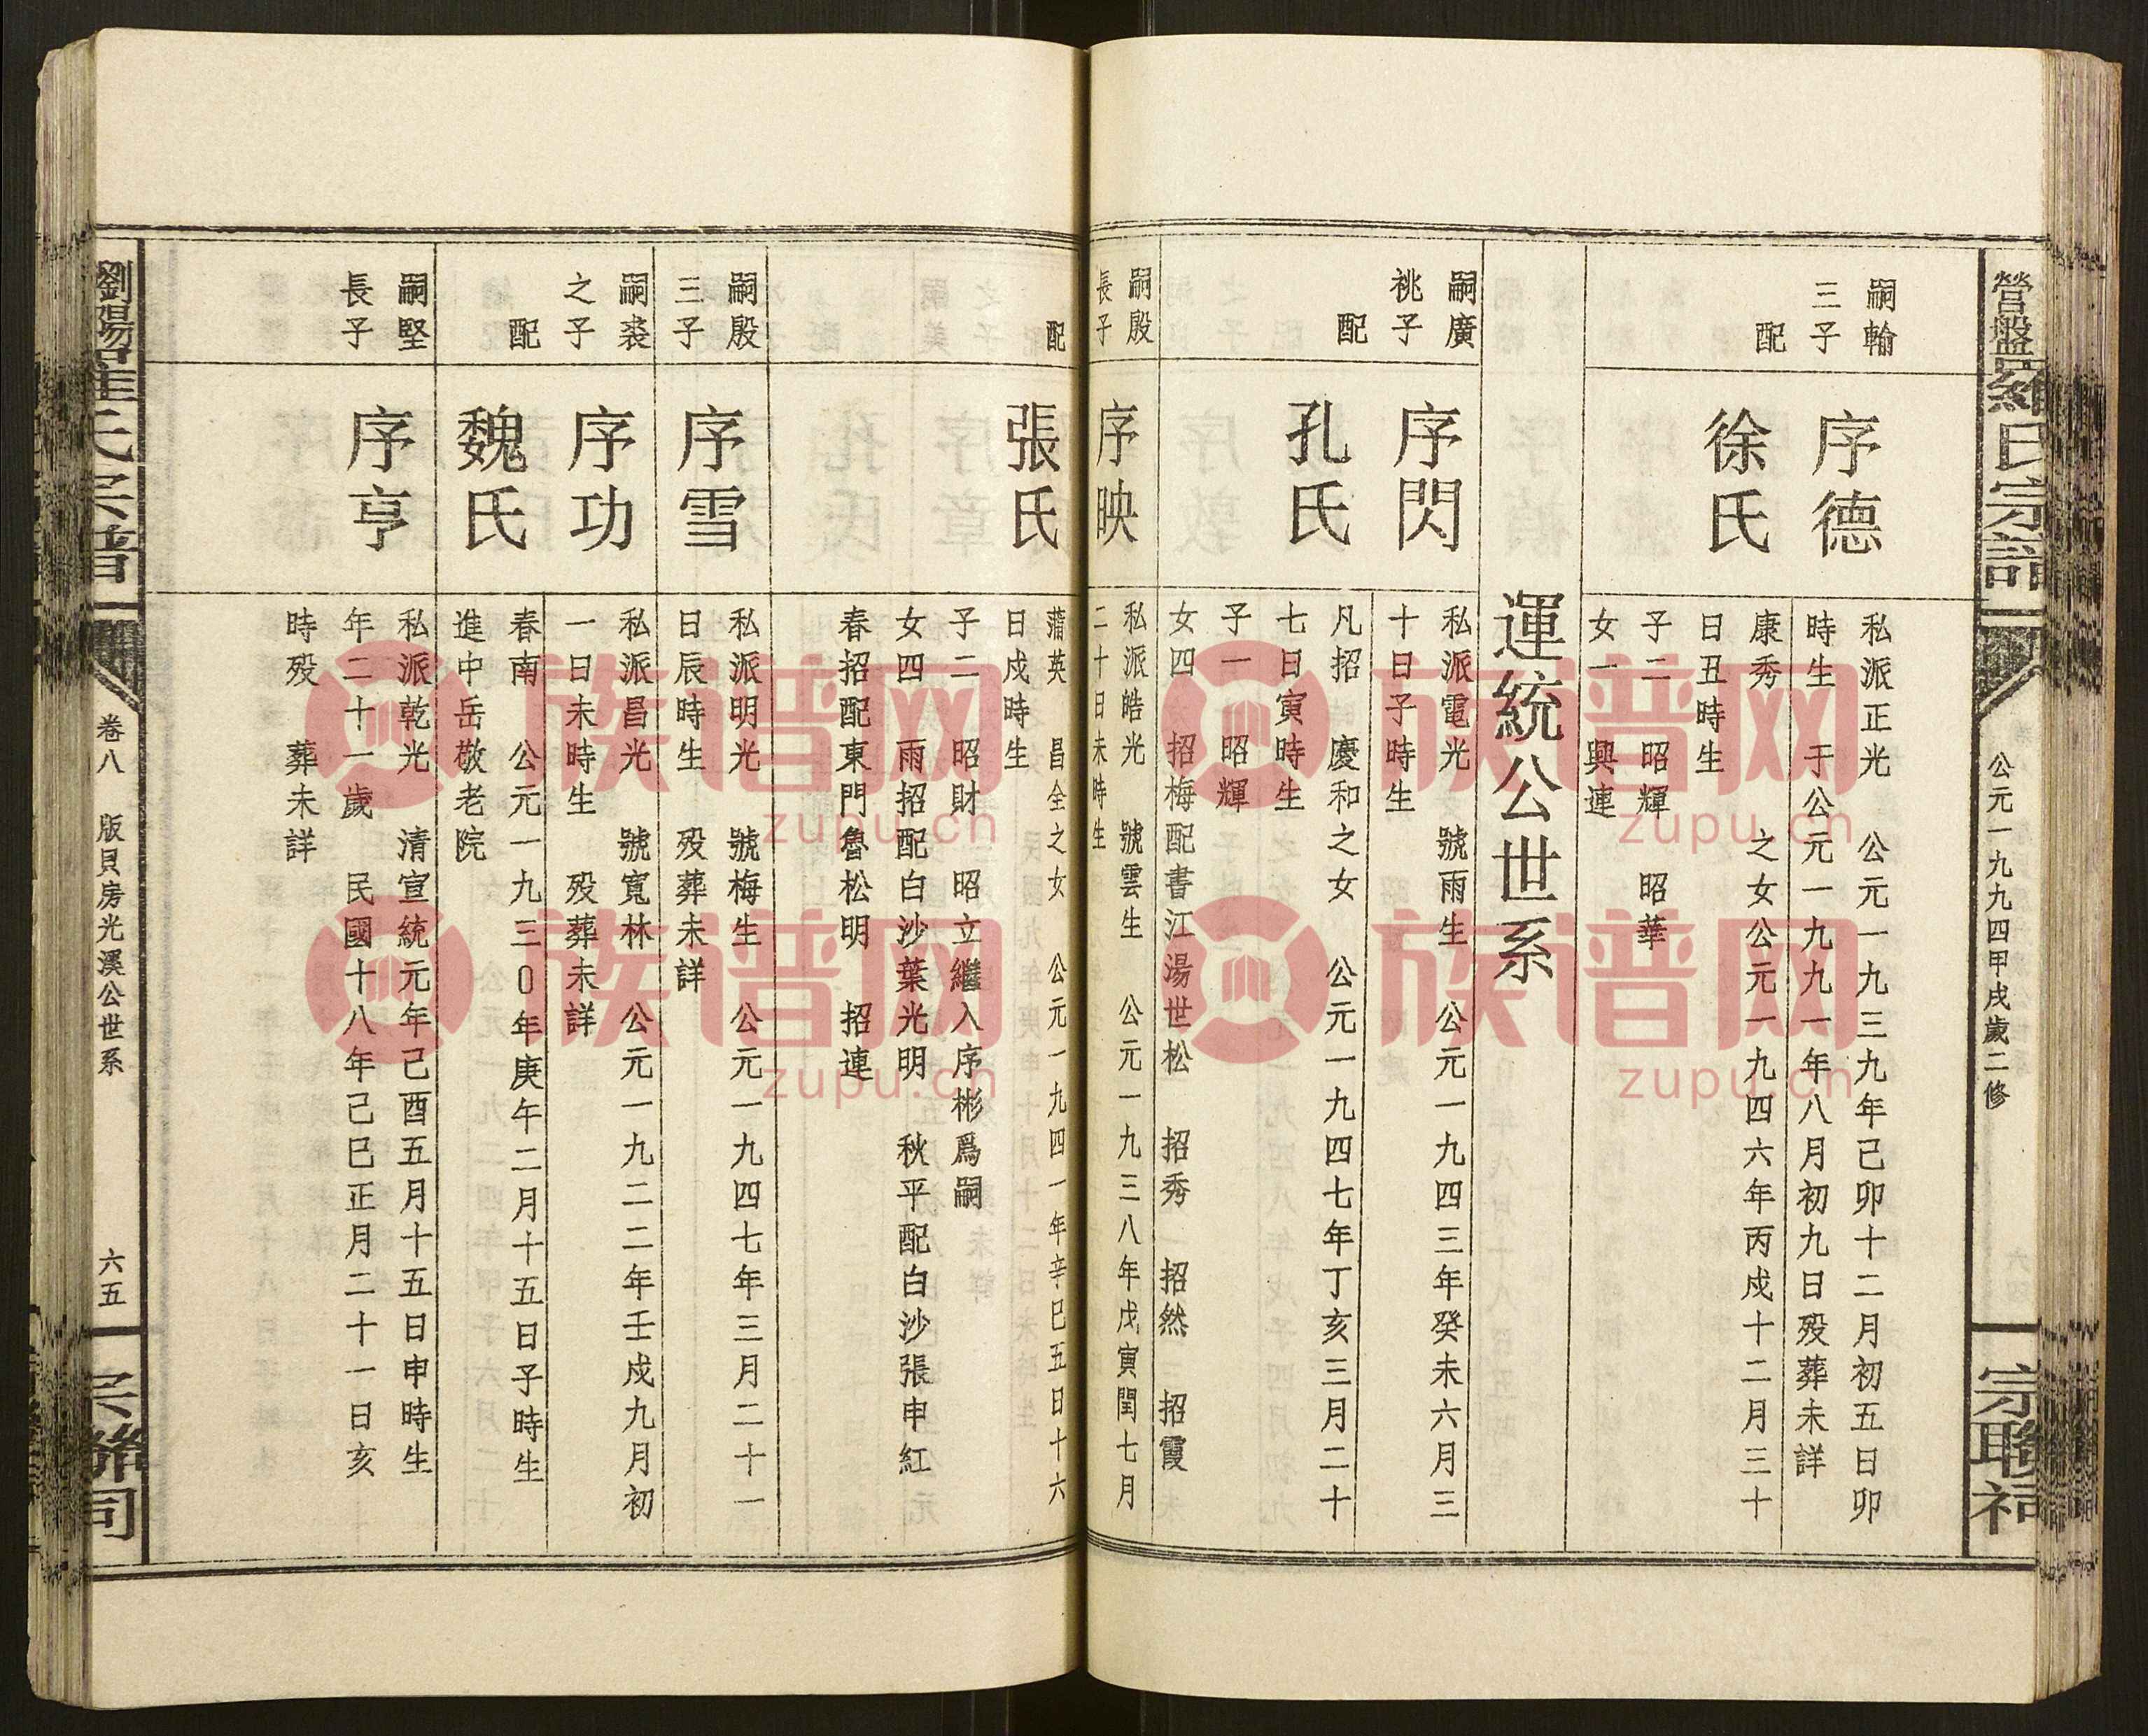 營盤羅氏宗譜
公元一九九四甲戌歲二修
宗聯祠
嗣輪
三子
序德
私派正光 公元一九三九年己卯十二月初五日卯
時生 于公元一九九一年八月初九日殁葬未詳
配
徐氏
康秀 之女公元一九四六年丙戍十二月三十
日丑時生
子二 昭輝 昭華
女一 興連
運統公世系
嗣廣
祧子
序閃
私派電光 號雨生 公元一九四三年癸未六月三
十日子時生
配
孔氏
凡招 慶和之女 公元一九四七年丁亥三月二十
七日寅時生
子一 昭輝
女四 招梅配書江湯世松 招秀 招然 招霞
嗣殷
長子
序映
私派皓光 號雲生 公元一九三八年戊寅閏七月
二十日未時生
配
張氏
蒲英 昌全之女 公元一九四一年辛巳五日十六
日戍時生
子二 昭財 昭立繼入序彬爲嗣
女四 雨招配白沙葉光明 秋平配白沙張申紅
春招配東門魯松明 招連
嗣殷
三子
序雪
私派明光 號梅生 公元一九四七年三月二十一
日辰時生 殁葬未詳
嗣裘
之子
序功
私派昌光 號寬林 公元一九二二年壬戍九月初
一日未時生 殁葬未詳
配
魏氏
春南 公元一九三0年庚午二月十五日子時生
進中岳敬老院
嗣堅
長子
序亨
私派乾光 清宣統元年己酉五月十五日申時生
年二十一歲 民國十八年己巳正月二十一日亥
時殁 葬未詳
劉陽羅氏宗譜
卷八 版貝房光溪公世系
六五
宗聯祠
族谱网
zupu.cn
族谱网
zupu.cn
族谱网
zupu.cn
族谱网
zupu.cn